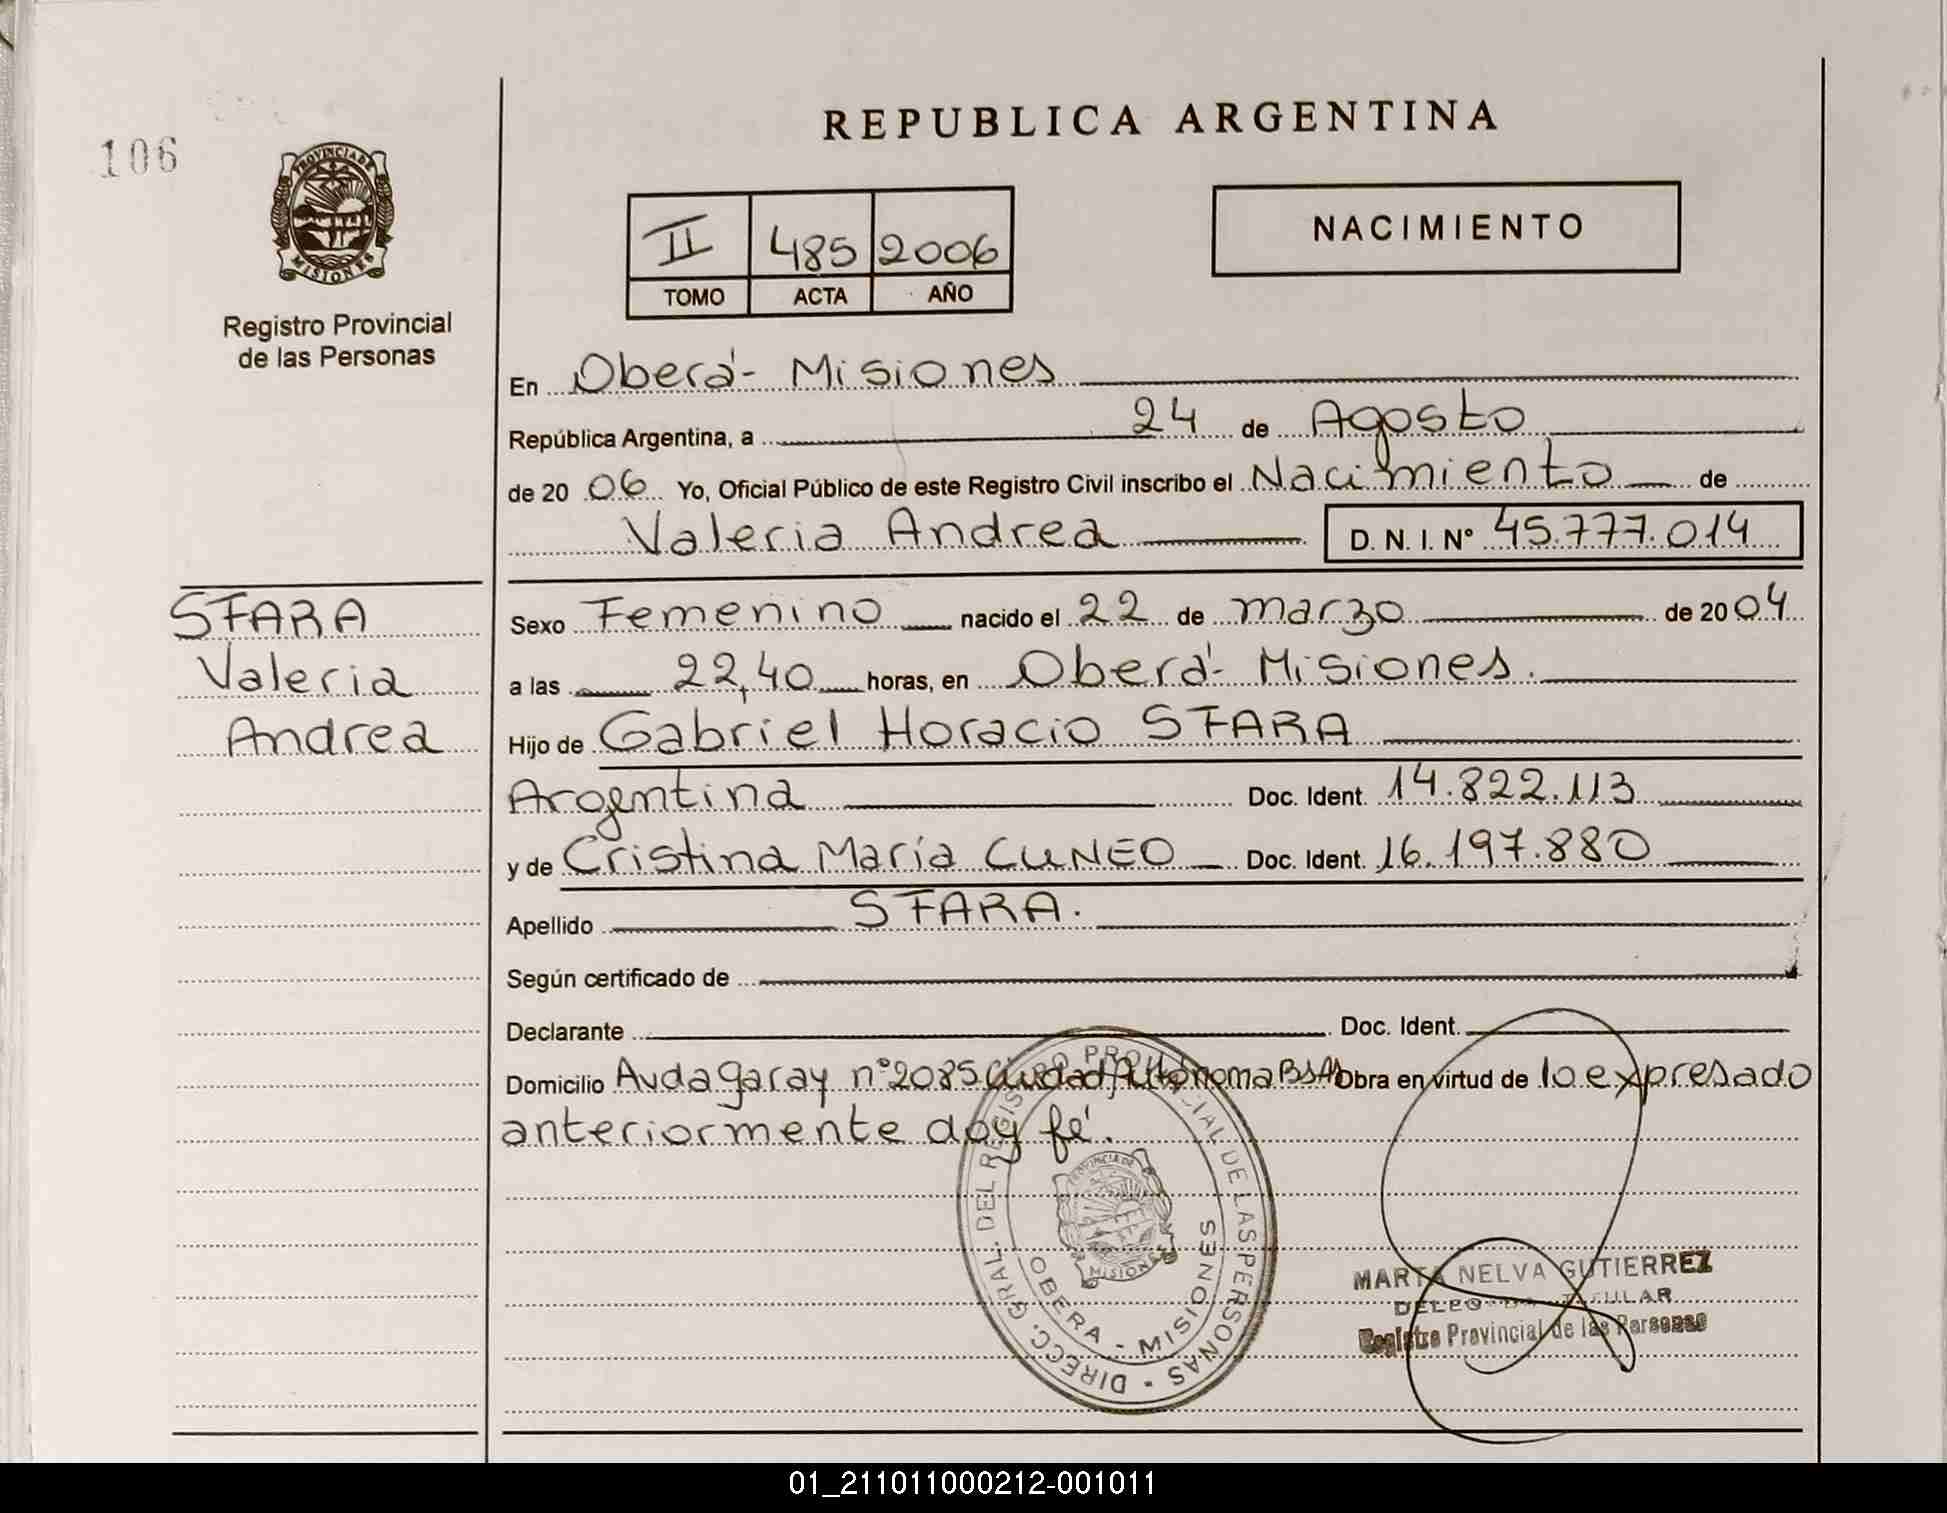 106
PROVINCIA DE
MISIONES
Registro Provincial
de las Personas
REPUBLICA ARGENTINA
II 485 2006
TOMO ACTA AÑO
NACIMIENTO
En Oberá- Misiones
República Argentina, a 24 de Agosto
de 20 06 Yo, Oficial Público de este Registro Civil inscribo el Nacimiento de
Valeria Andrea D. N. I. N° 45.777.014
SFARA
Valeria
Andrea
Sexo Femenino nacido el 22 de marzo de 20 04
a las 22,40 horas, en Oberá- Misiones.
Hijo de Gabriel Horacio SFARA
Argentina Doc. Ident. 14.822.113
y de Cristina María CUNEO Doc. Ident. 16.197.880
Apellido SFARA.
Según certificado de
Declarante Doc. Ident.
Domicilio Avda garay n°2085 Ciudad Autónoma BsAs Obra en virtud de lo expresado
anteriormente doy fé.
DIRECC. GRAL. DEL REGISTRO PROVINCIAL DE LAS PERSONAS -
PROVINCIA DE
MISIONES
OBERA - MISIONES
MARTA NELVA GUTIERREZ
Registro Provincial de las Personas
01_211011000212-001011